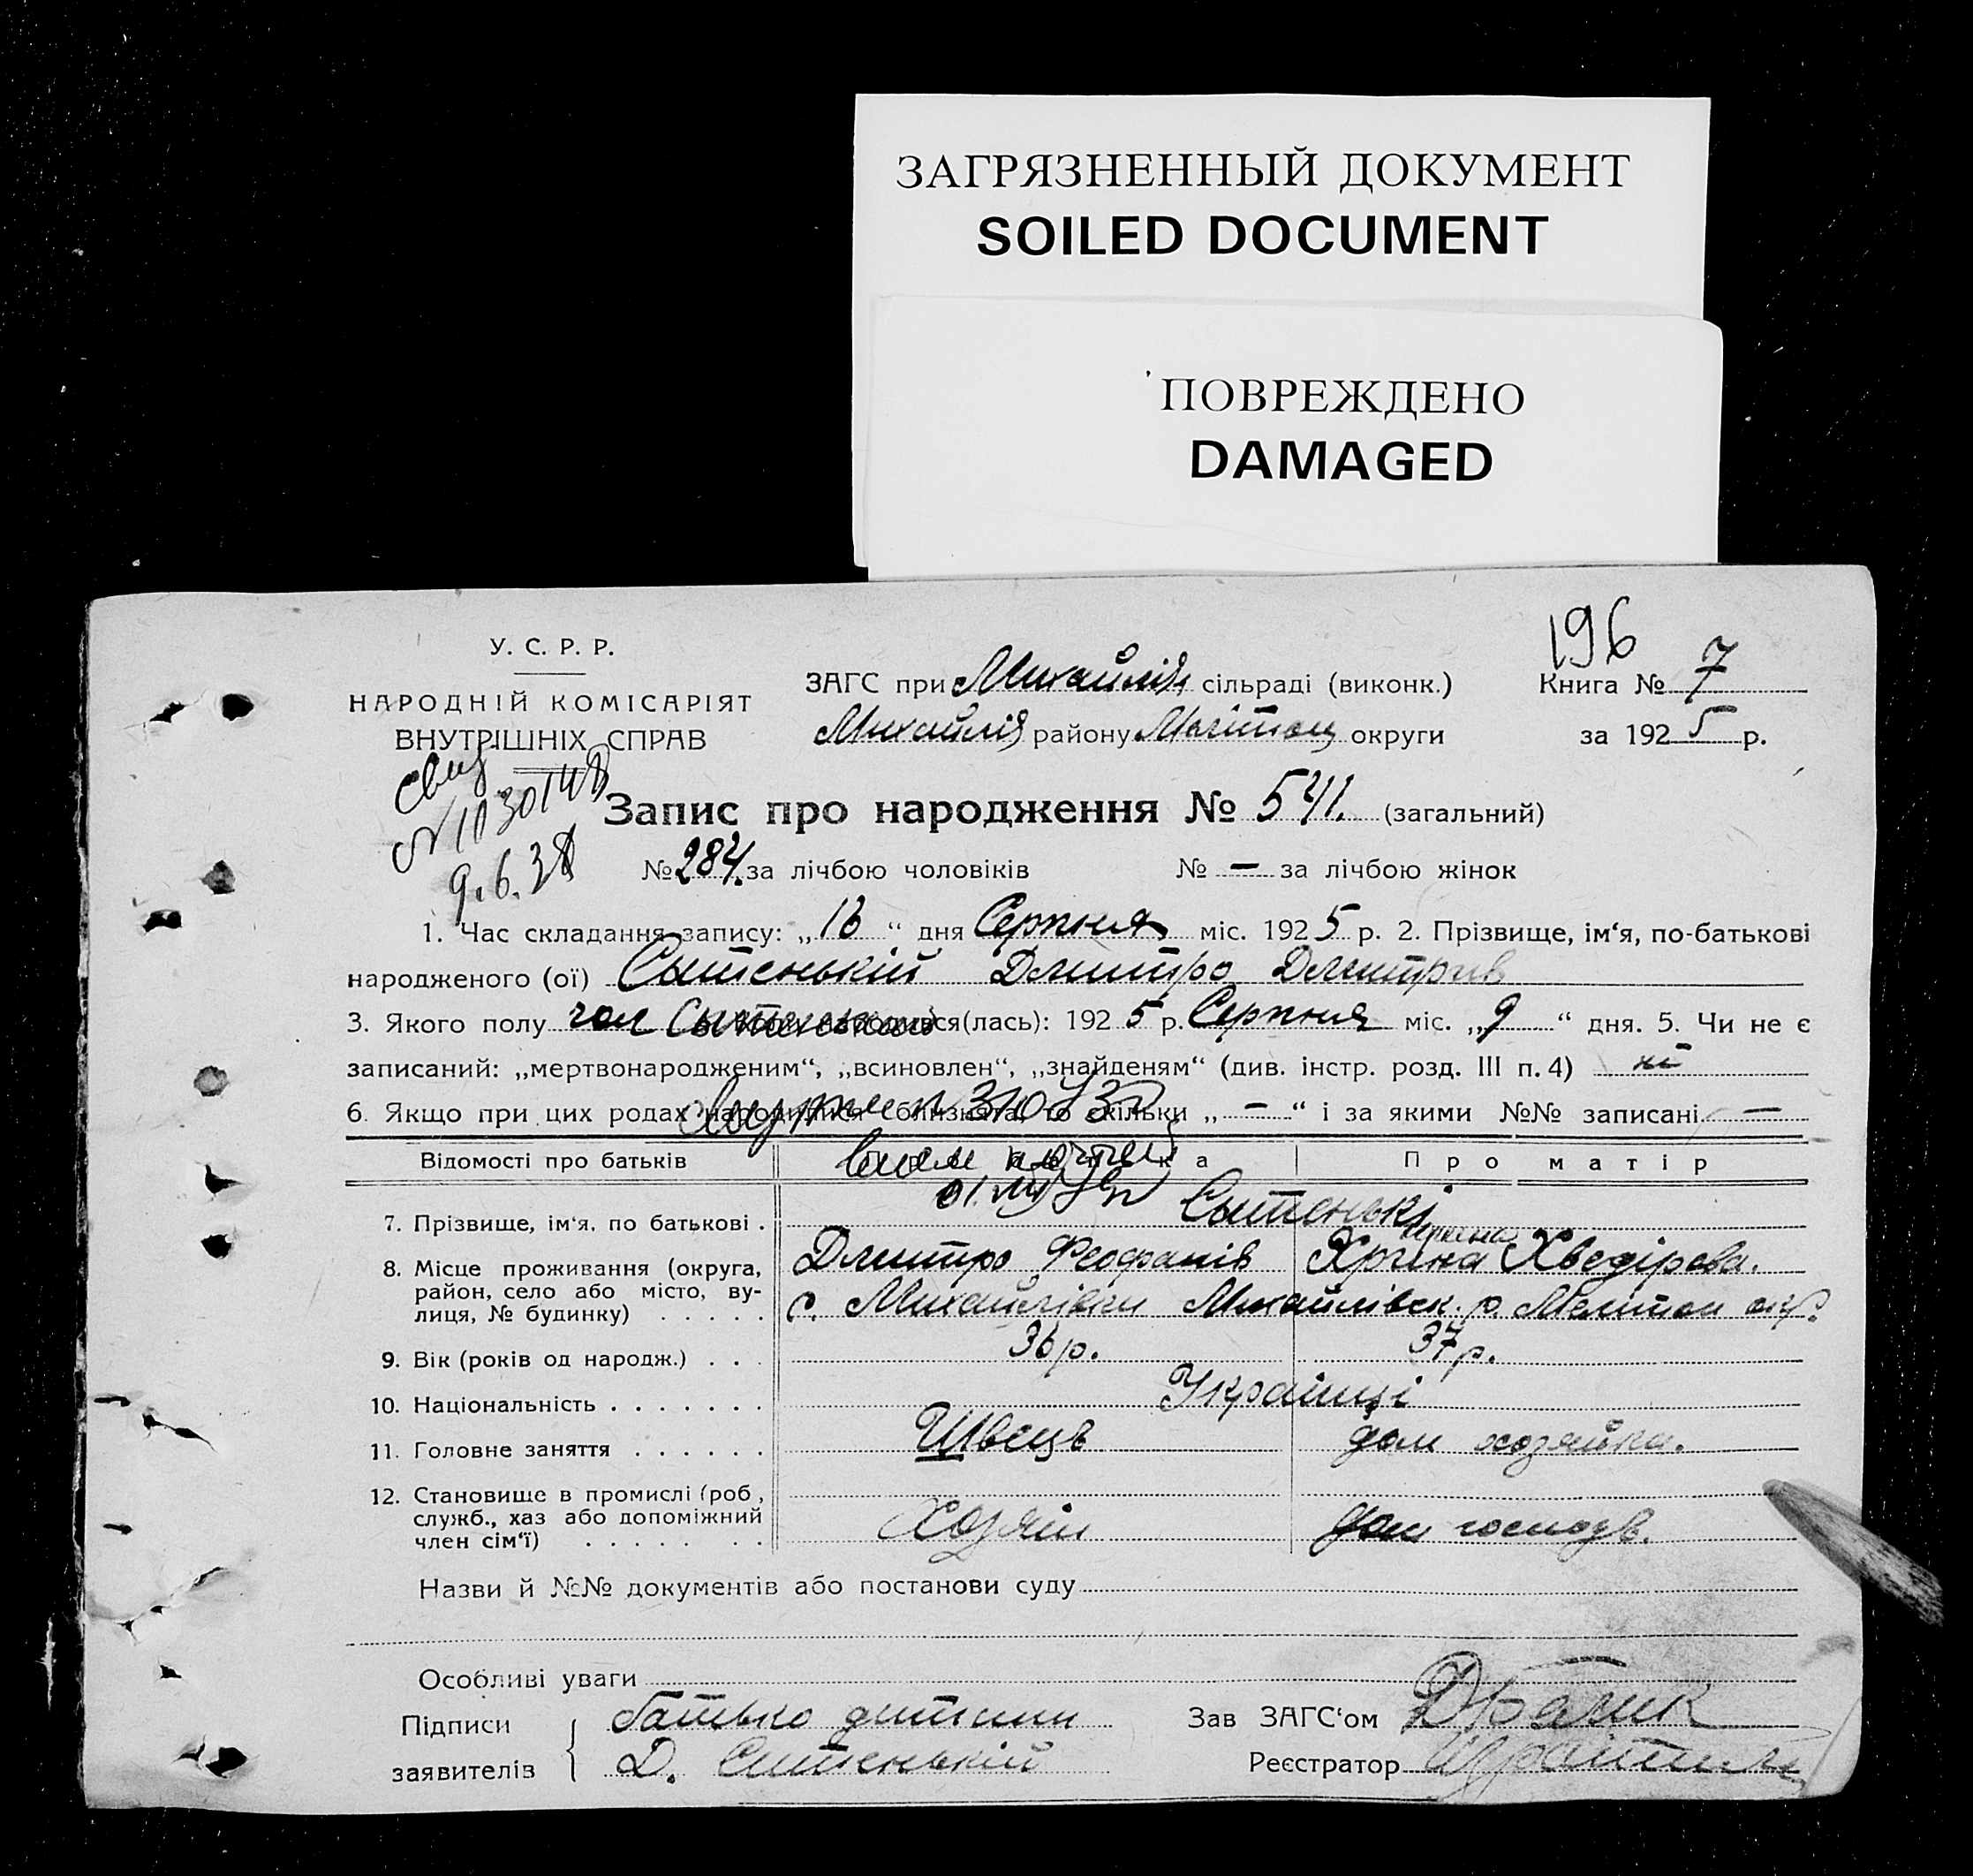 ЗАГРЯЗНЕННЫЙ ДОКУМЕНТ
SOILED DOCUMENT
ПОВРЕЖДЕНО
DAMAGED
196
У. С. Р. Р.
НАРОДНІЙ КОМІСАРІЯТ
ВНУТРІШНІХ СПРАВ
ЗАГС при Михайлів сільраді (виконк.)
Михайлів району Меліт округи
Книга № 7
за 1925 р.
Свид
N 103014
9.6.38
Запис про народження № 541. (загальний)
№ 284. за лічбою чоловіків № — за лічбою жінок
1. Час складання запису: „16“ дня Серпня міс. 1925 р. 2. Прізвище, ім‘я, по-батькові
народженого (ої) Сытенькій Дмитро Дмитрів
3. Якого полу чол Сытенький (лась): 1925 р. Серпня міс. „9“ дня. 5. Чи не є
записаний: „мертвонародженим“, „всиновлен“, „знайденям“ (див. інстр. розд. III п. 4) ні
6. Якщо при цих родах народилися близнята, то скільки „ — “ і за якими №№ записані —
Відомості про батьків
Про матір
7. Прізвище, ім‘я, по батькові . Сытенькі
Дмитро Феофанів Хріна Хведірова.
8. Місце проживання (округа,
район, село або місто, ву-
лиця, № будинку) . . . . . с. Михайлівки Михайлівск. р. Мелітоп окр.
9. Вік (років од народж.) . . . 36 р. 37 р.
10. Національність . . . . . . . Українці
11. Головне заняття . . . . . . Швець дом хозяйка.
12. Становище в промислі (роб.,
служб., хаз або допоміжний
член сім‘ї) . . . . . . . Хозяїн дом господ.
Назви й №№ документів або постанови суду
Особливі уваги
Підписи
заявителів
батько дитини
Д. Ситенькій
Зав ЗАГС‘ом
Реєстратор